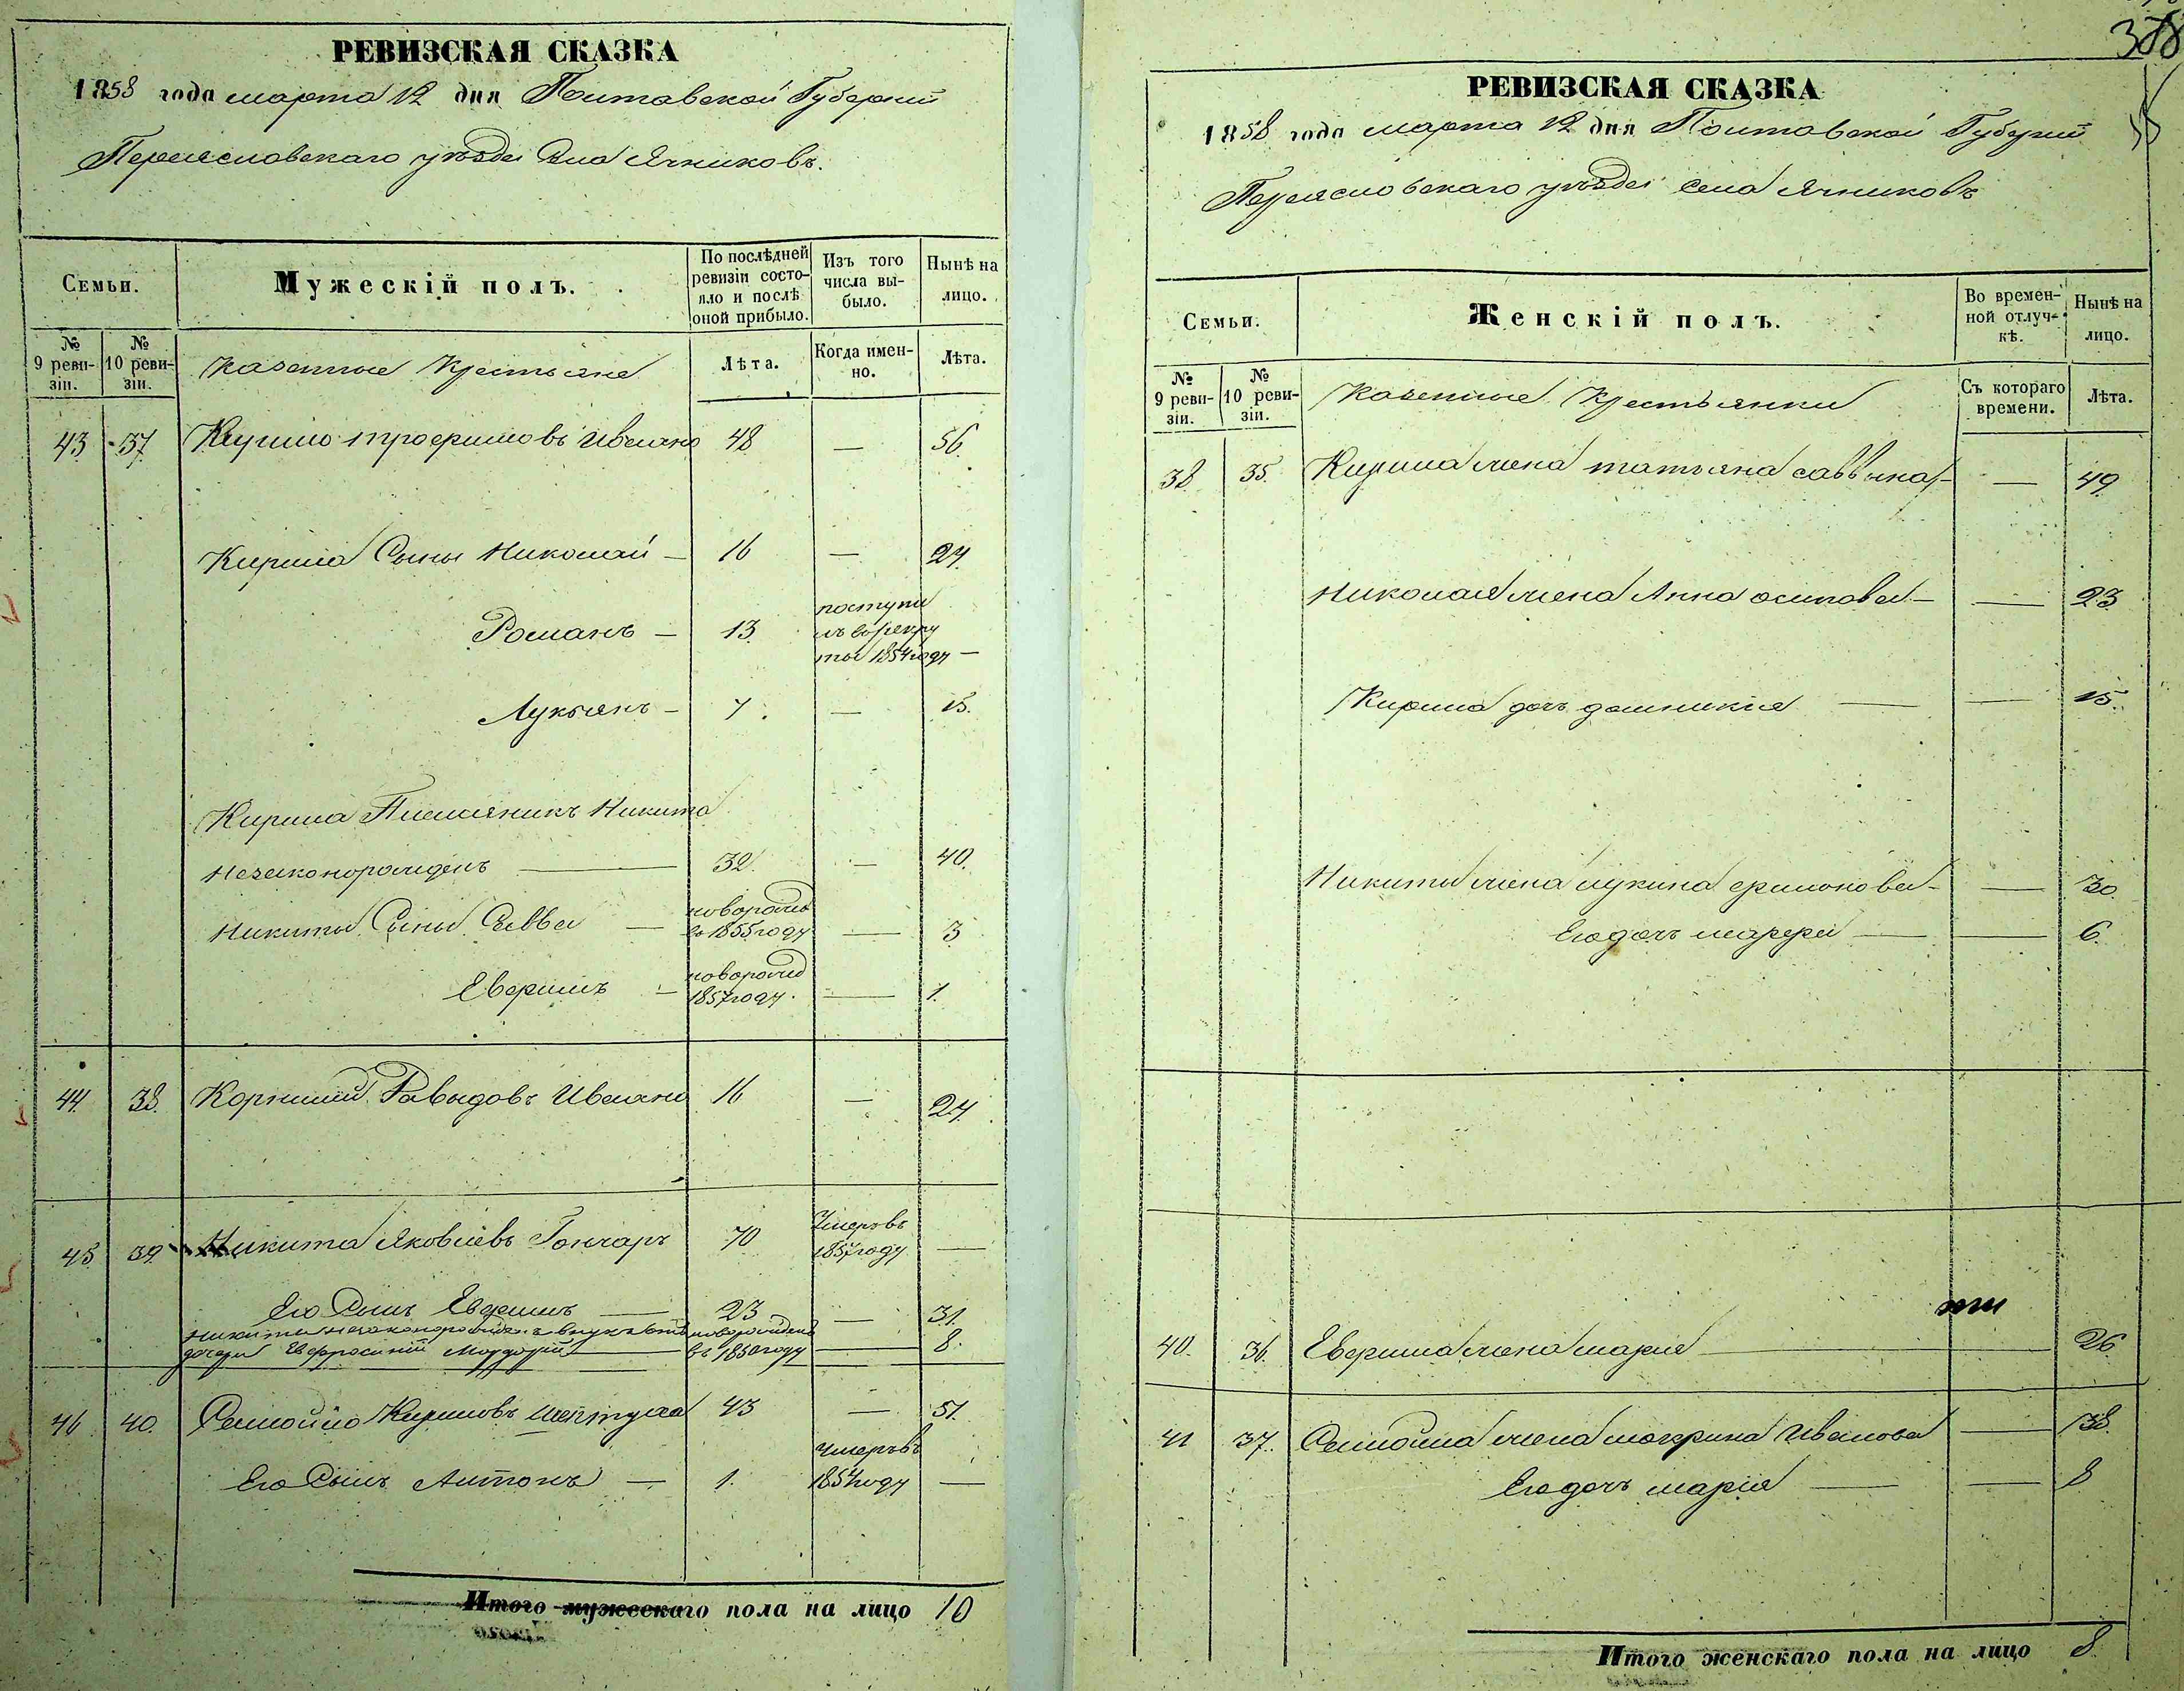 РЕВИЗСКАЯ СКАЗКА
1858 года марта 12 дня Полтавской Губернии
Переяславскаго уѣзда Села Ячниковъ.
Семьи.
Мужескій полъ.
По послѣдней ревизіи состояло и послѣ оной прибыло.
Изъ того числа выбыло.
Нынѣ на лицо.
№ 9 ревизіи.
№ 10 ревизіи.
Казенные Крестьяне
Лѣта.
Когда именно.
Лѣта.
43 37 Кирило трофимовъ 48 — 56.
Кирила Сыны Николай — 16 — 24.
Романъ — 13. поступи
лъворекру
ты 1854году —
Лукьянъ — 7. — 15.
Кирила Племяникъ Никита
Незаконорожденъ — 32. — 40.
Никиты Сыны Савва — новорожд
въ 1855году — 3
Евфимъ — новорожд
1857году. — 1.
44. 38. Корнилий Давыдовъ 16 — 24.
45. 39. Никита Яковлевъ Гончаръ 70 Умеръвъ
1857году —
Его Сынъ Евфимъ — 23 — 31.
Никиты незаконорожден. внукъ отъ новорожденъ
дочери Евфросинии — въ 1850году — 8.
46 40. Самойло Кириловъ 43 — 51.
Его Сынъ Антонъ — 1. умеръвъ
1854году —
Итого мужескаго пола на лицо 10
388
РЕВИЗСКАЯ СКАЗКА
1858 года марта 12 дня Полтавской Губернии
Переяславскаго уѣзда села Ячниковъ
Семьи.
Женскій полъ.
Во временной отлучкѣ.
Нынѣ на лицо.
№ 9 ревизіи.
№ 10 ревизіи.
Казенные Крестьянки
Съ котораго времени.
Лѣта.
38. 35. Кирила жена татьяна саввына — — 49.
Николая жена Анна осипова — — 23.
Кирила дочь домникия — — 15.
Никиты жена — — 30.
Егодочь марфа — — 6.
40. 36. Евфима жена мария — 26.
41 37. Самойла жена макрина Иванова — 38.
Егодочь мария — — 8
Итого женскаго пола на лицо 8.